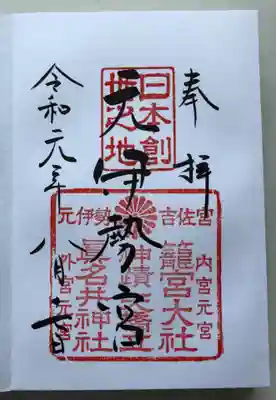 奉拝
日本創
之地
元伊勢宮
令和元年八月
元伊勢
吉佐宮
内宮元宮
籠宮大社
神蹟
眞名井神社
外宮元宮